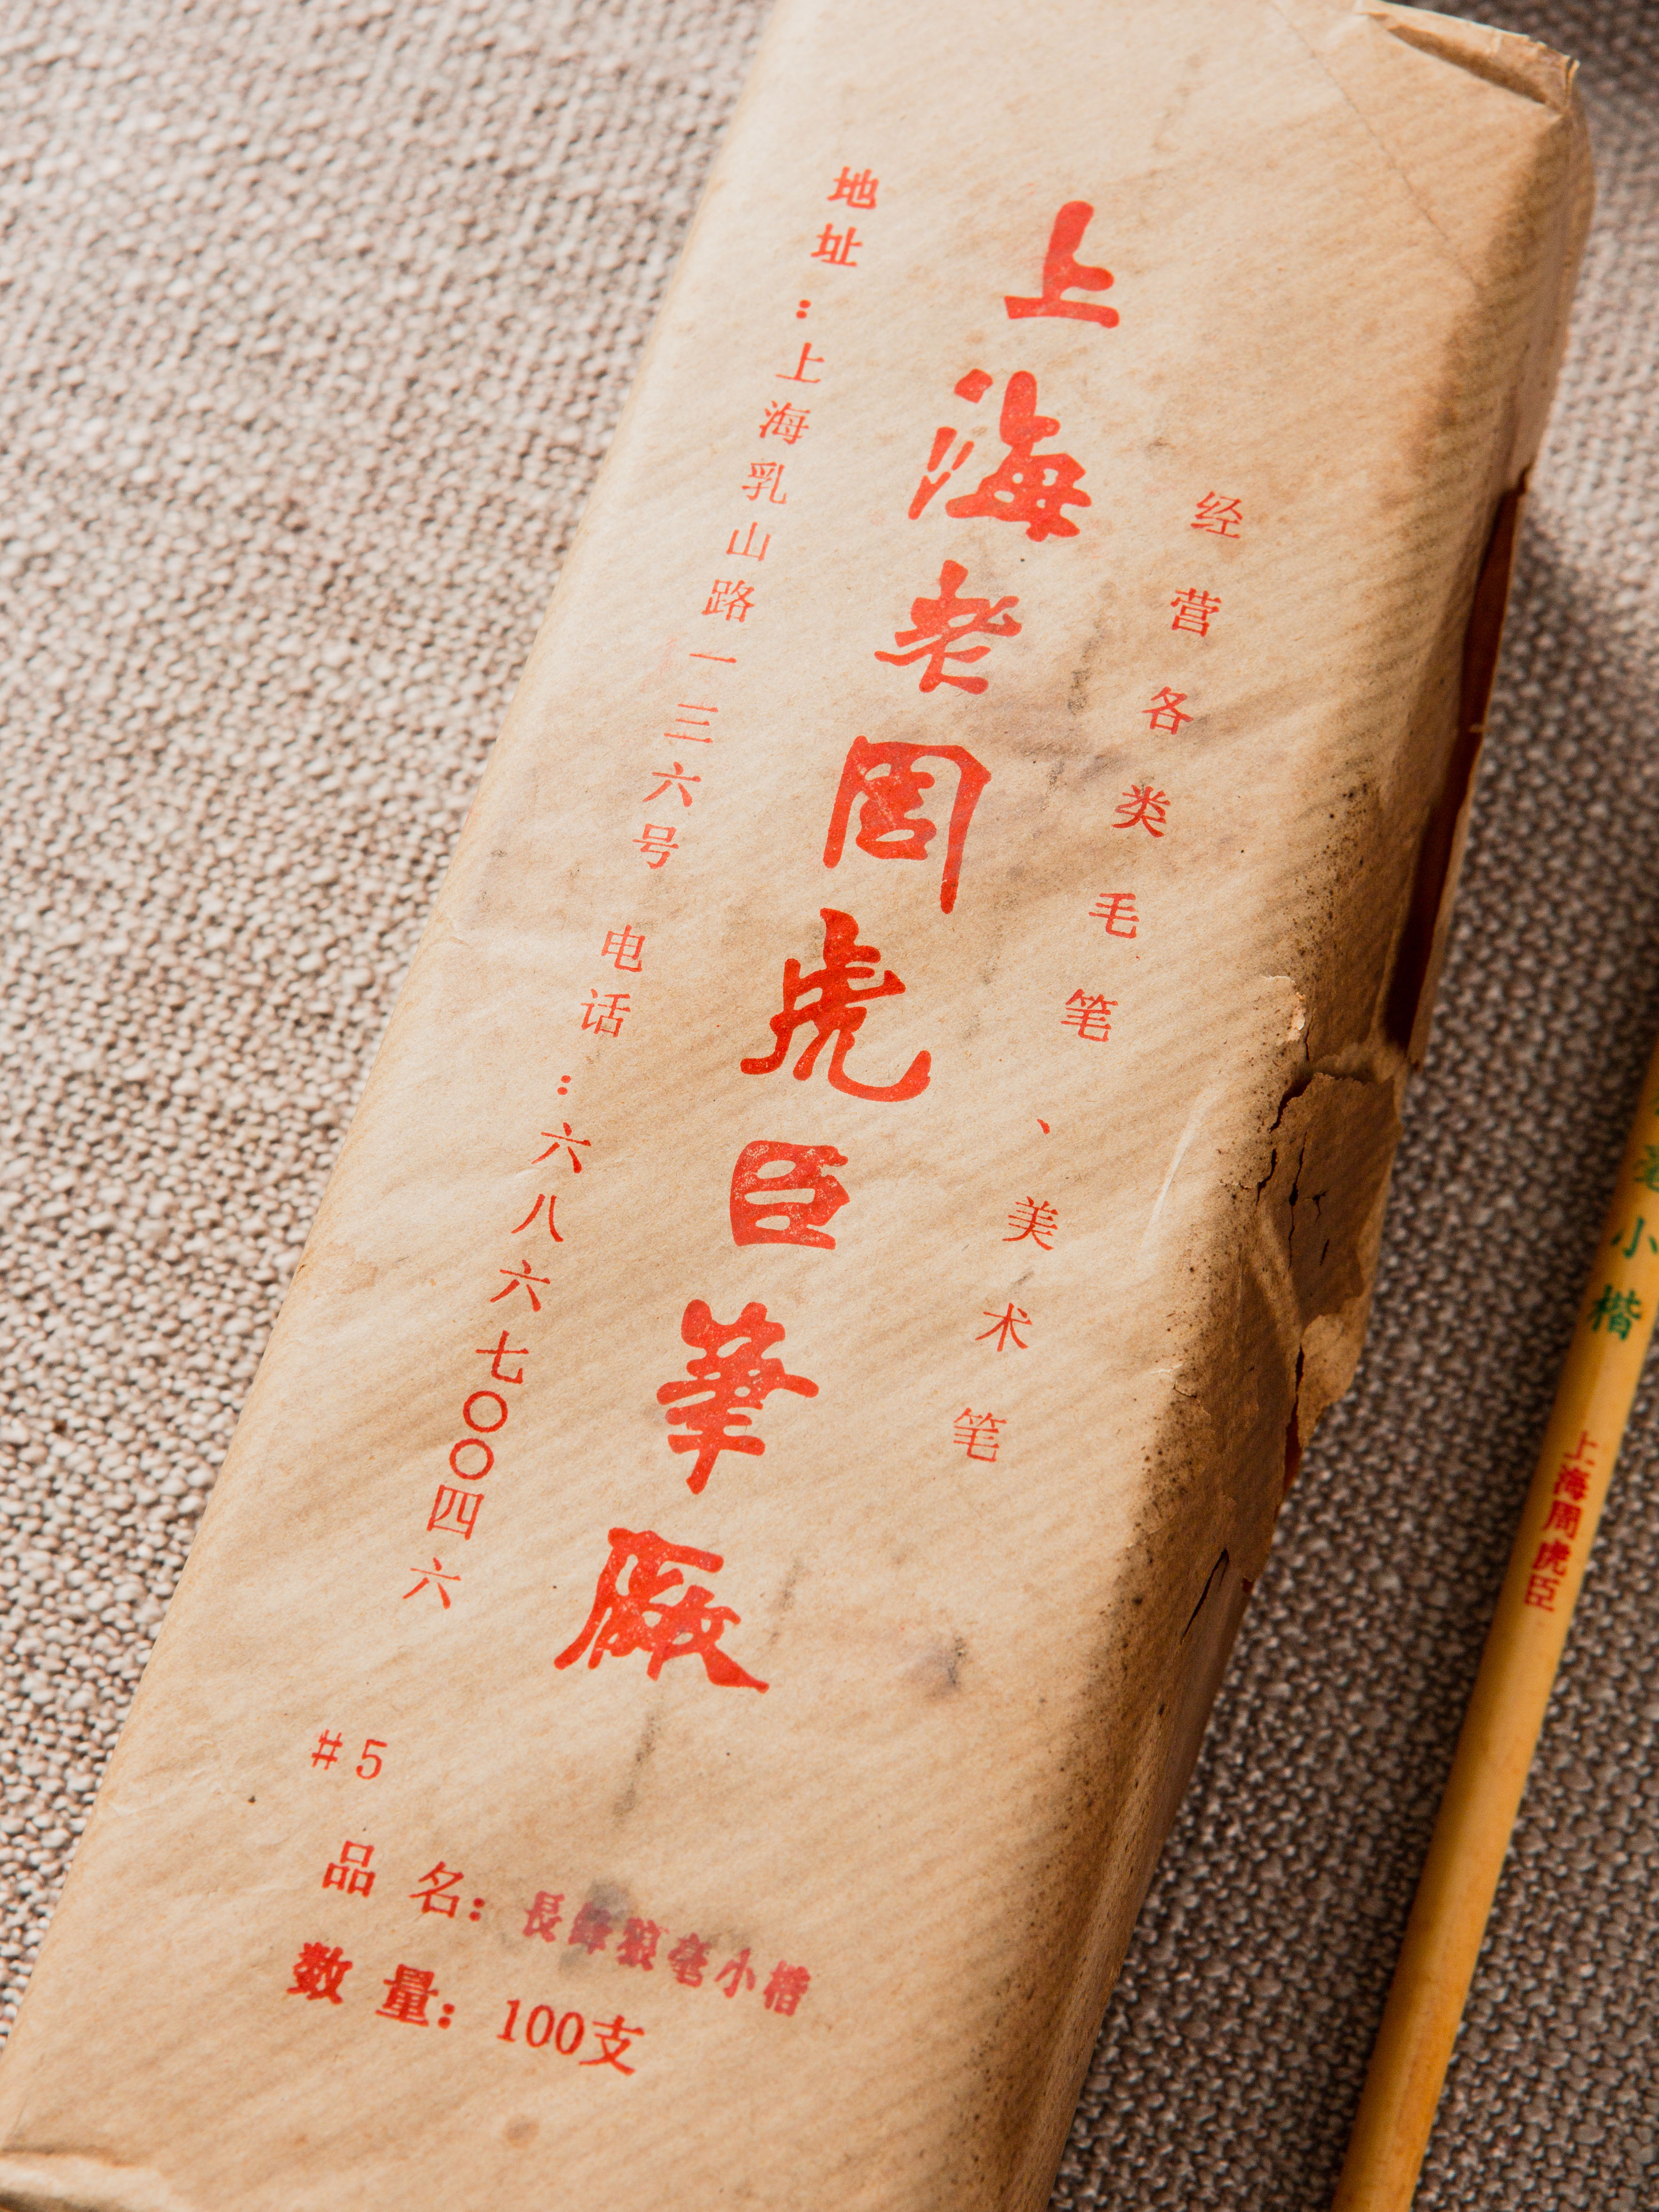 经营各类毛笔、美术笔
上海老周虎臣筆廠
地址：上海乳山路一三六号 电话：六八六七〇〇四六
#5
品 名：長鋒狼毫小楷
数 量：100支
毫小楷
上海周虎臣